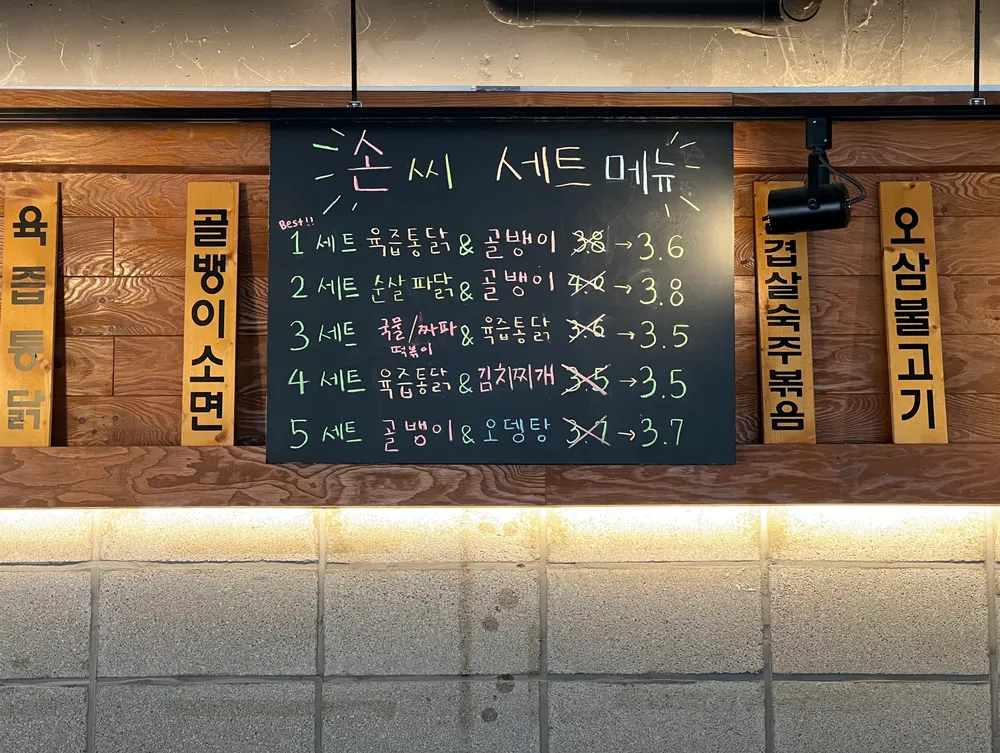 육즙통닭
골뱅이소면
손씨 세트 메뉴
Best!!
1 세트 육즙통닭 & 골뱅이 3.8 → 3.6
2 세트 순살 파닭 & 골뱅이 4.0 → 3.8
3 세트 국물/짜파 떡볶이 & 육즙통닭 3.6 → 3.5
4 세트 육즙통닭 & 김치찌개 3.5 → 3.5
5 세트 골뱅이 & 오뎅탕 → 3.7
겹살숙주볶음
오삼불고기